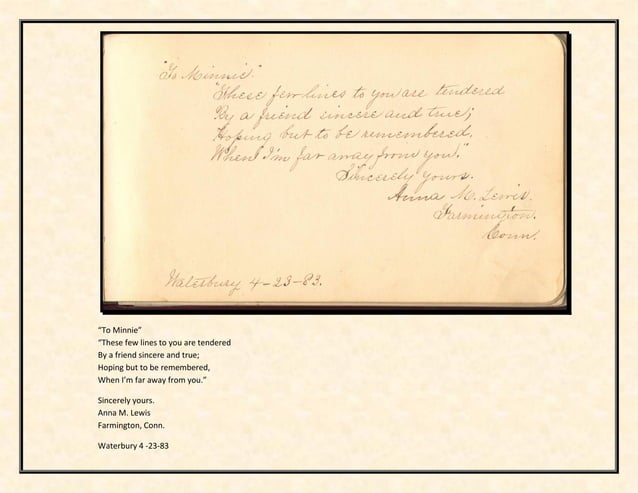 "To Minnie."
"These few lines to you are tendered
By a friend sincere and true;
Hoping but to be remembered,
When I'm far away from you."
Sincerely yours.
Anna M. Lewis.
Farmington.
Conn.
Waterbury 4-23-83.
“To Minnie”
“These few lines to you are tendered
By a friend sincere and true;
Hoping but to be remembered,
When I’m far away from you.”
Sincerely yours.
Anna M. Lewis
Farmington, Conn.
Waterbury 4 -23-83